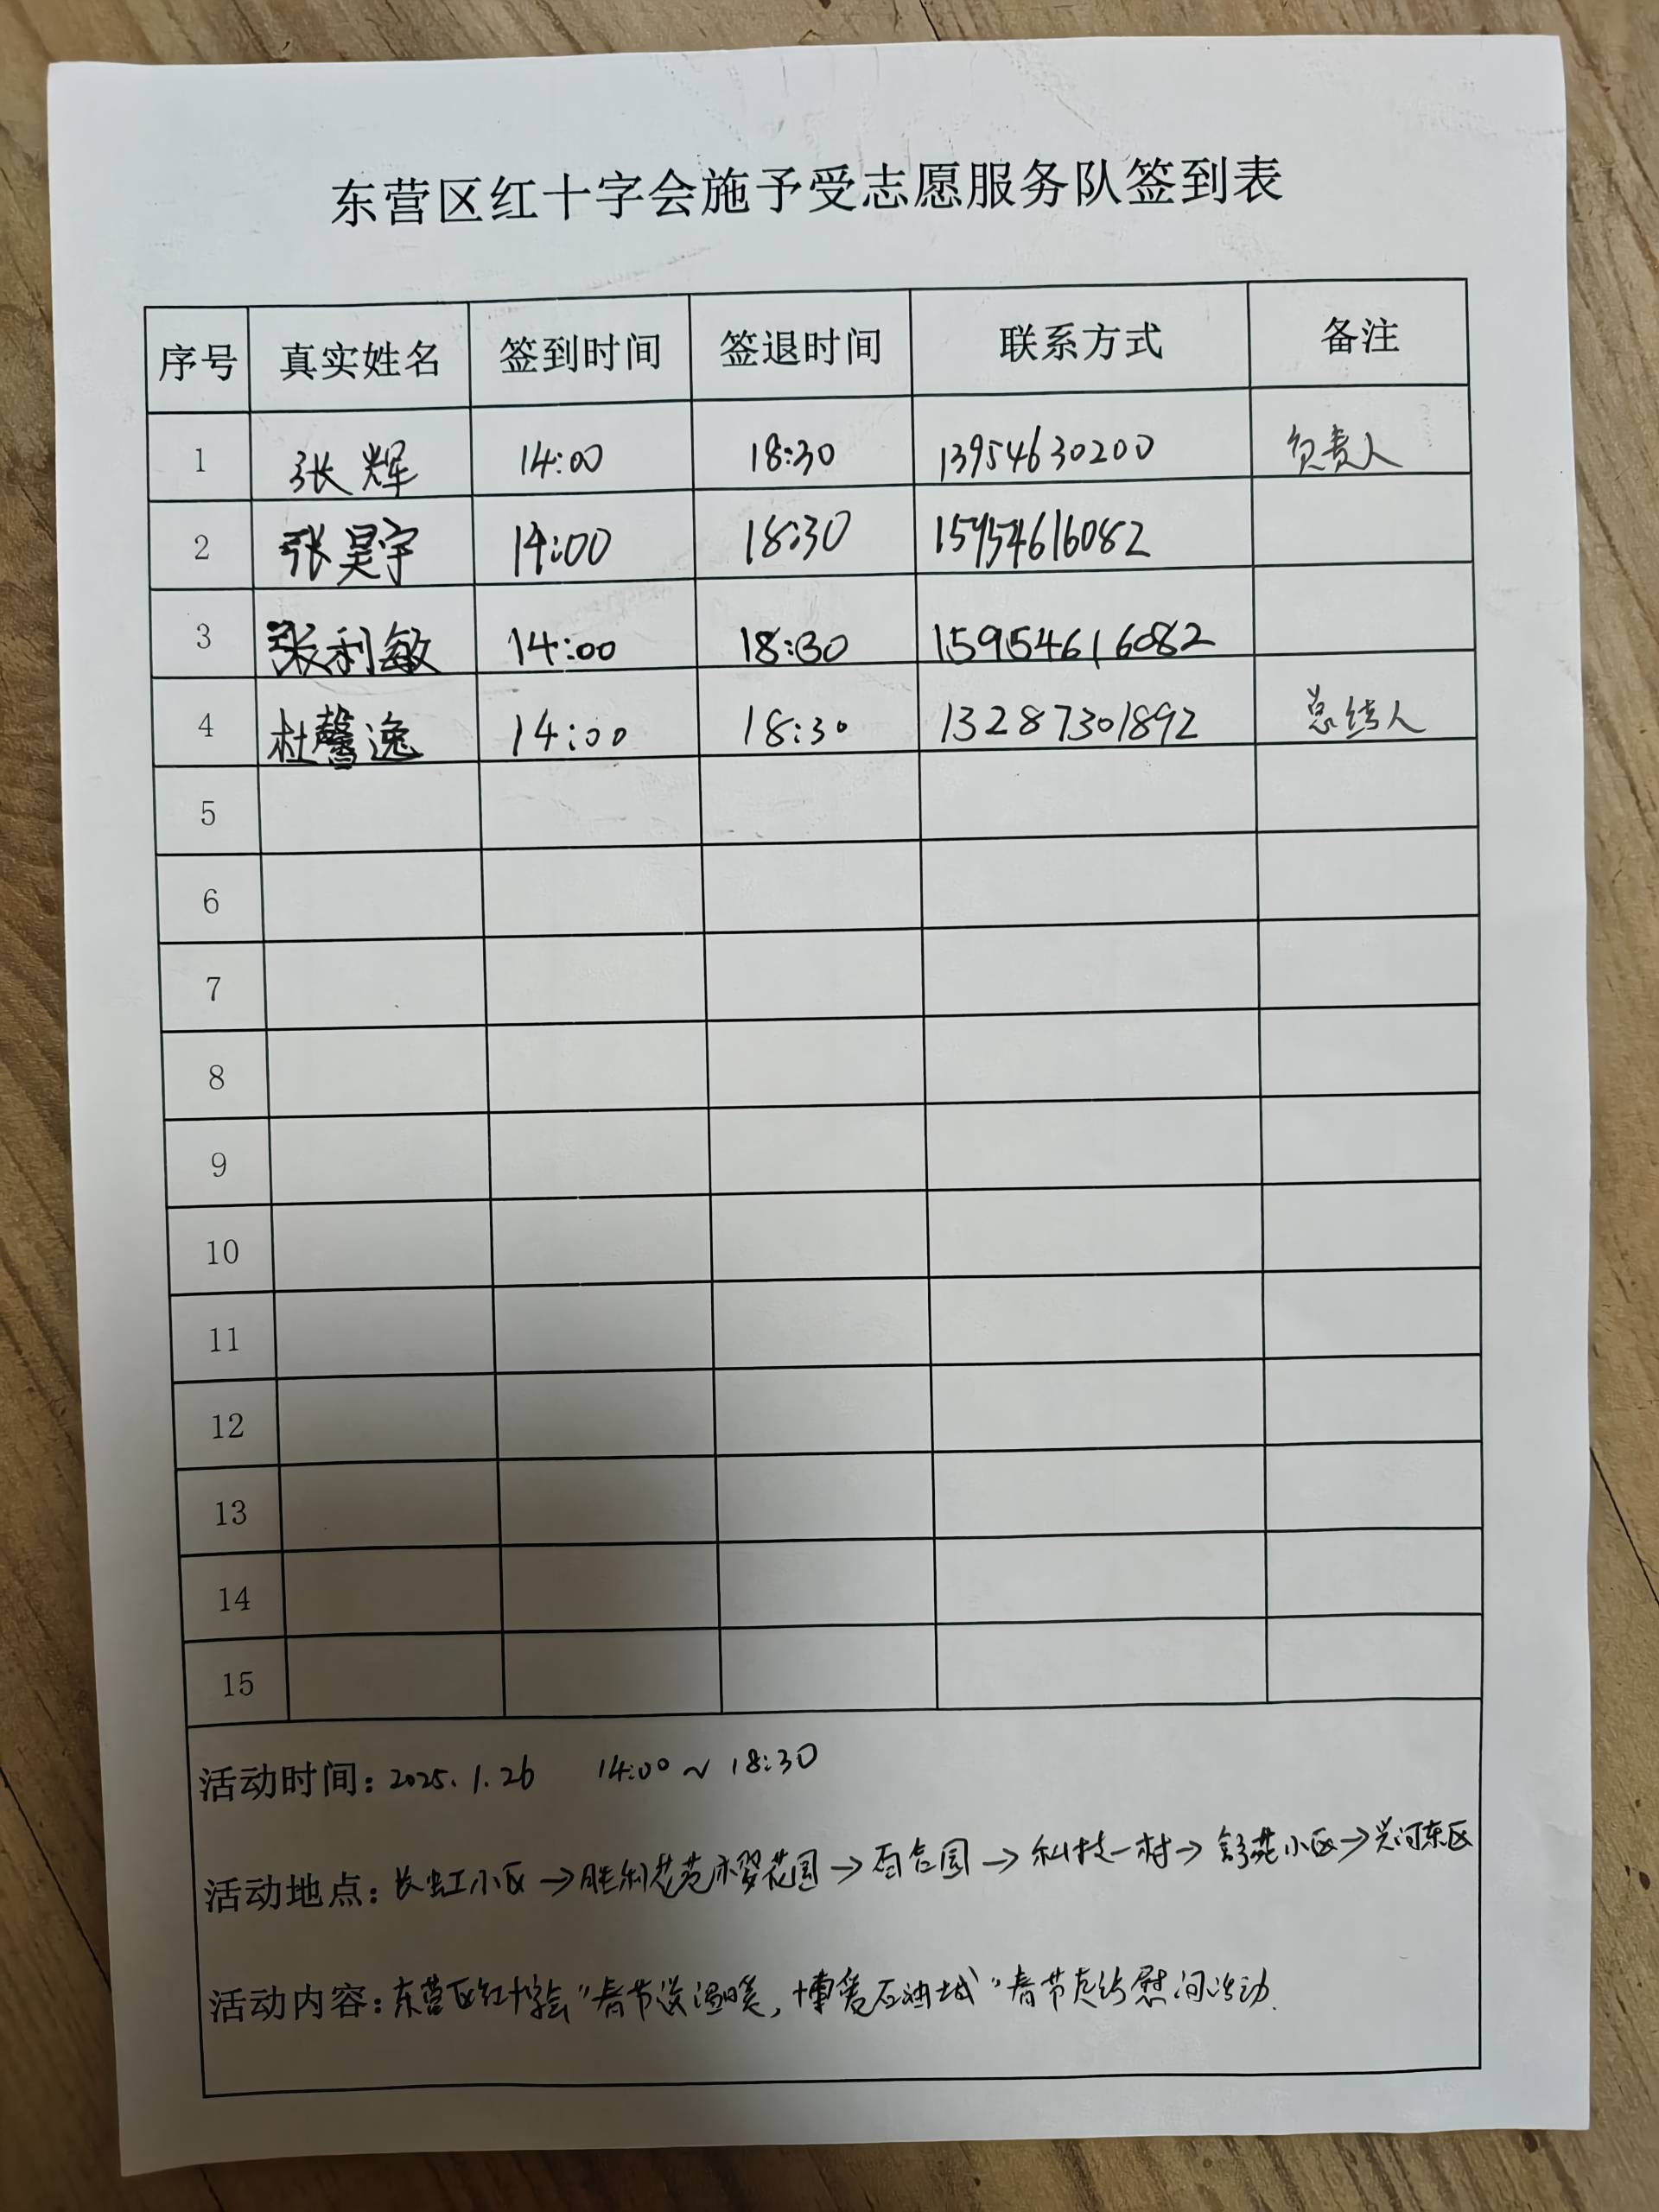 东营区红十字会施予受志愿服务队签到表
序号 真实姓名 签到时间 签退时间 联系方式 备注
1 张辉 14:00 18:30 13954630200 负责人
2 张昊宇 14:00 18:30 15954616082
3 张利敏 14:00 18:30 15954616082
4 杜馨逸 14:00 18:30 13287301892 总结人
5
6
7
8
9
10
11
12
13
14
15
活动时间: 2025.1.26 14:00~18:30
活动地点: 长虹小区→胜利花苑樱花园→百合园→科技一村→舒苑小区→兴河东区
活动内容: 东营区红十字会"春节送温暖,博爱石油城"春节走访慰问活动.